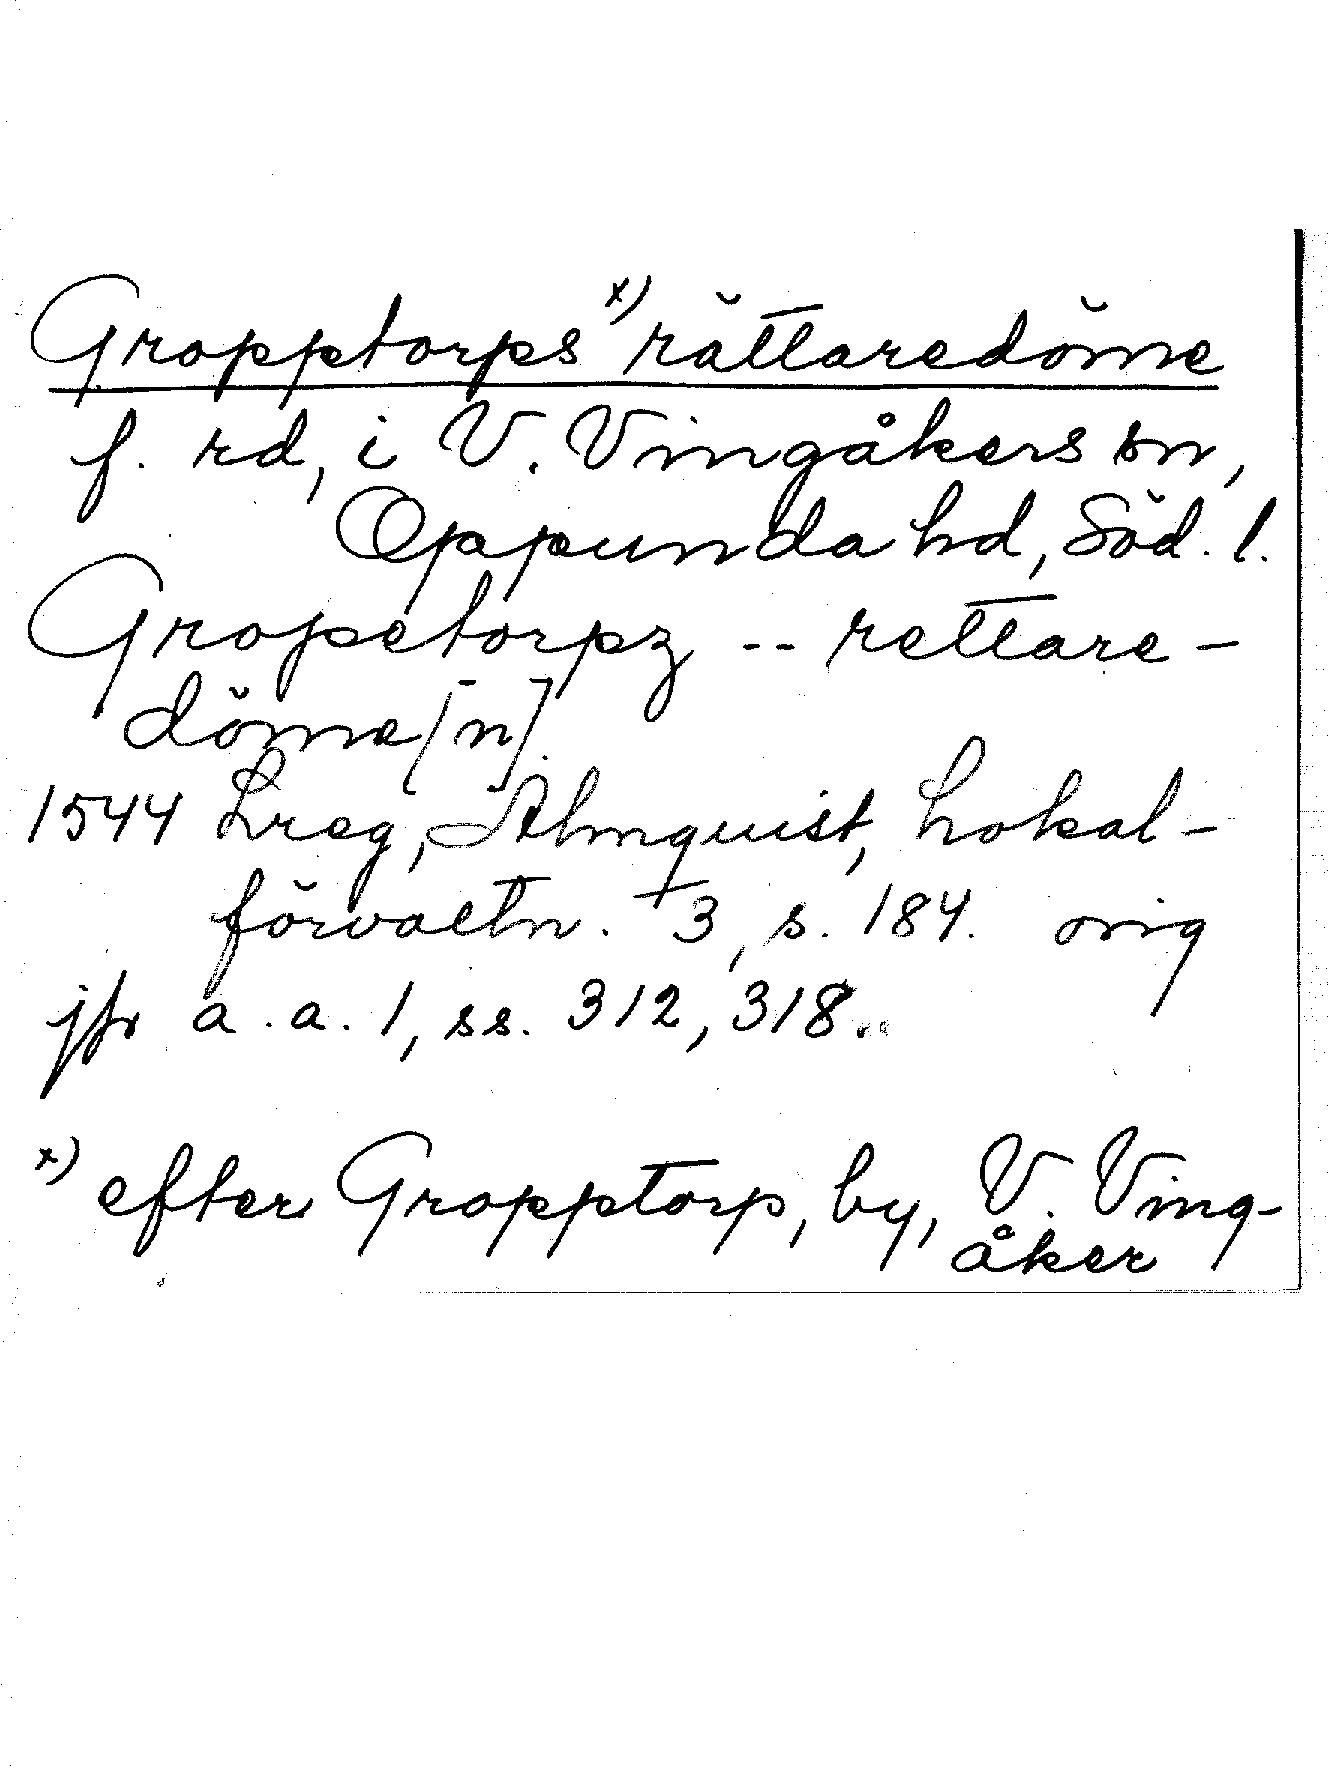 Gropptorps x) rättaredöme
f. rd, i V. Vingåkers sn,
Oppunda hd, Söd. l.
Gropetorpz -- rettare-
döme[n]
1544 Lreg, Almquist, Lokal-
förvaltn. 3, s. 184. orig
jfr a. a. 1, ss. 312, 318.
x) efter Gropptorp, by, V. Ving-
åker